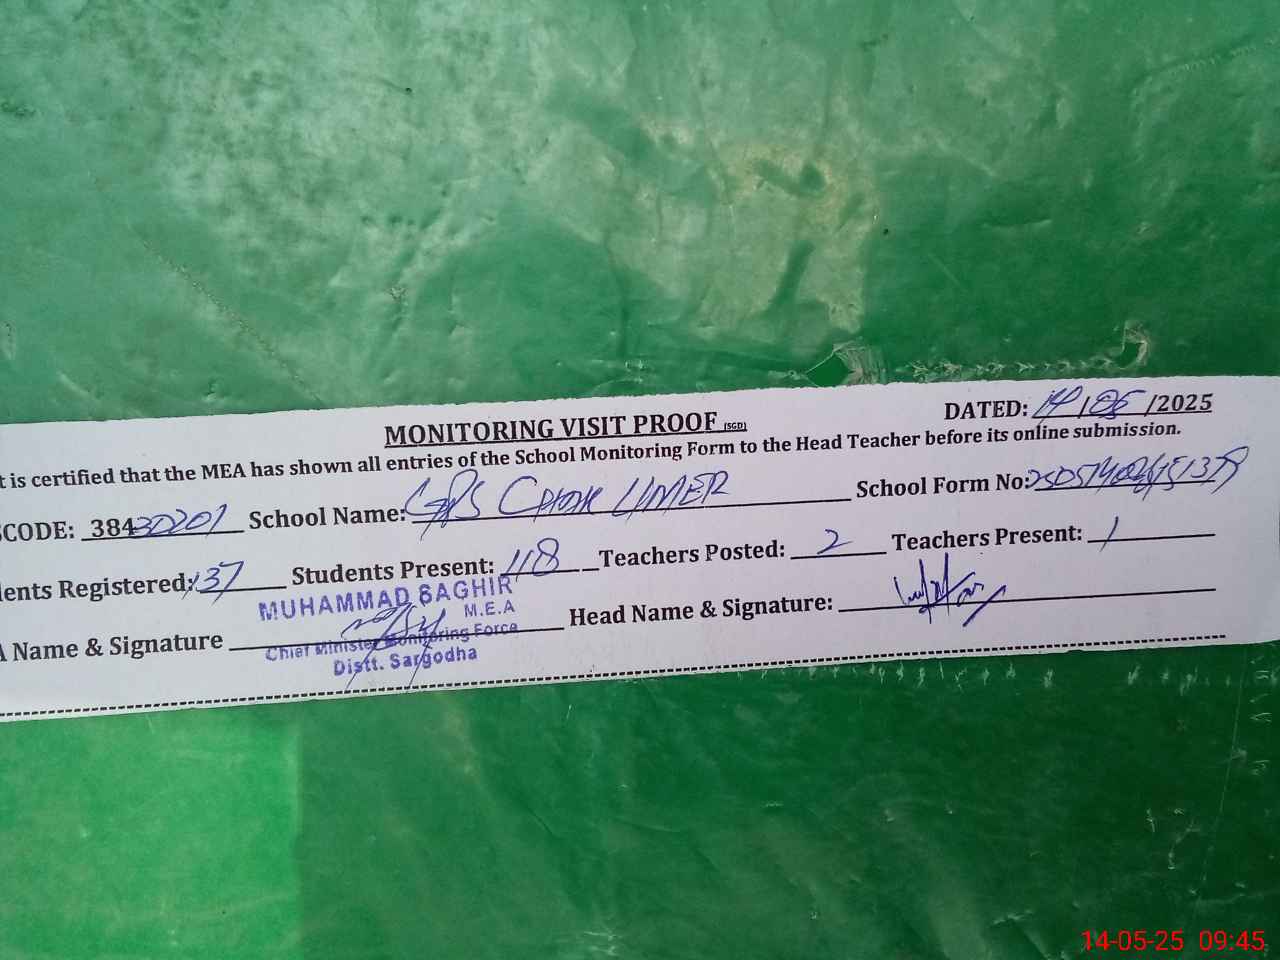 MONITORING VISIT PROOF (SGD) DATED: 14/05/2025
t is certified that the MEA has shown all entries of the School Monitoring Form to the Head Teacher before its online submission.
CODE: 38430201 School Name: GPS UMER School Form No:
ents Registered: 137 Students Present: 118 Teachers Posted: 2 Teachers Present: 1
Name & Signature MUHAMMAD SAGHIR Head Name & Signature:
M.E.A
Chief Minister Monitoring Force
Distt. Sargodha
14-05-25 09:45